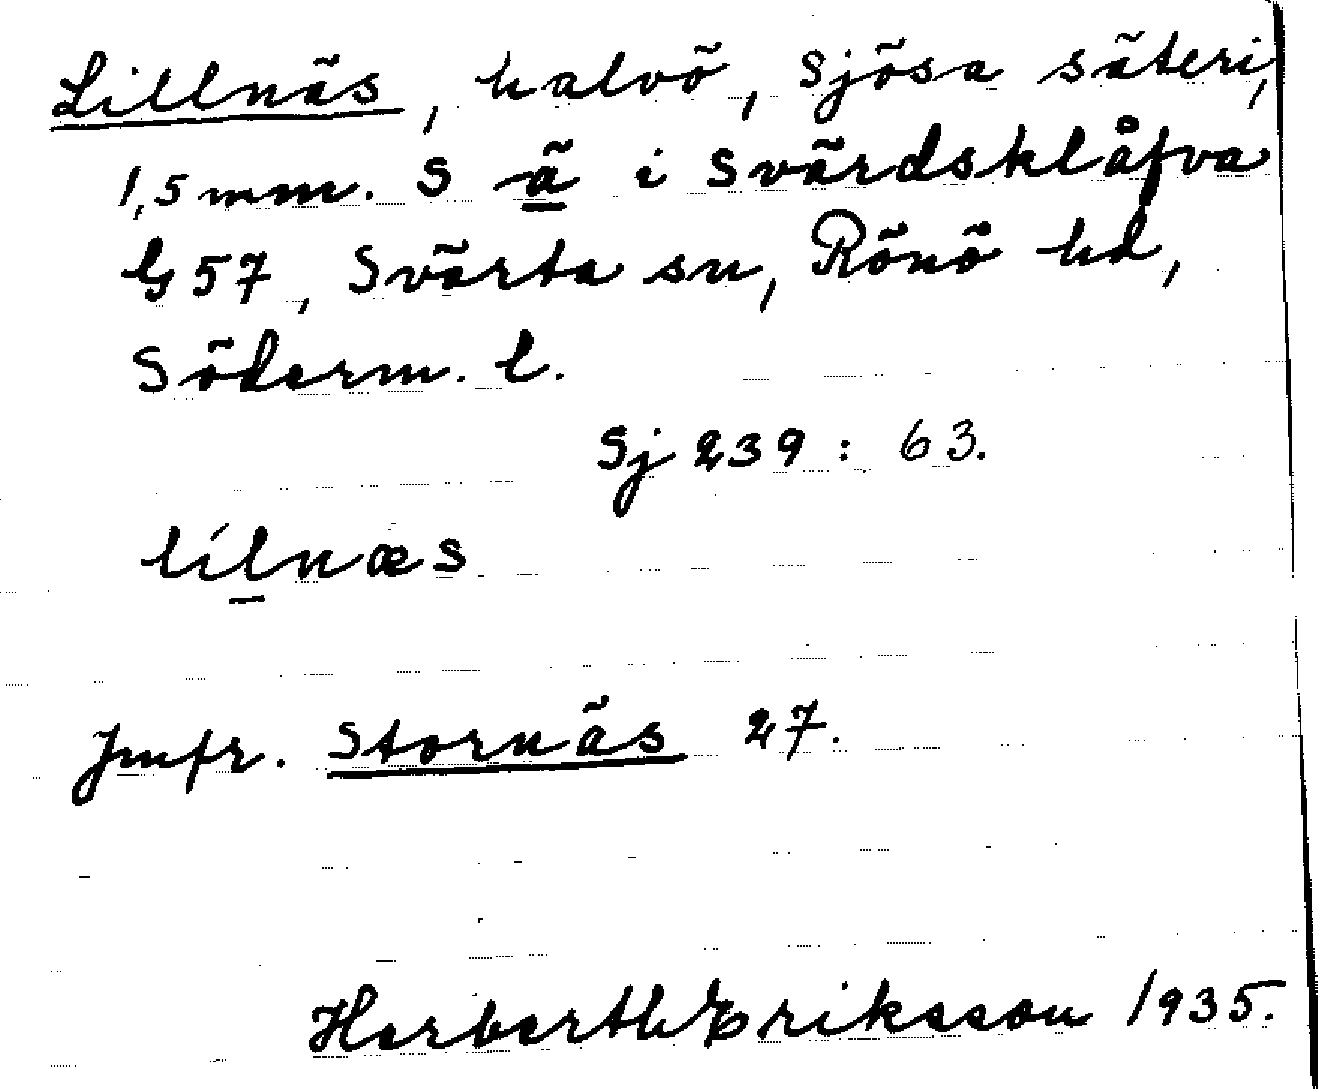 Lillnäs, halvö, Sjösa säteri,
1,5 mm. S ä i Svärdsklåfva
G 57, Svärta sn, Rönö hd,
Söderm. l.
Sj 239 : 63.
lílnæs
Jmfr. Stornäs 27.
Herberth Eriksson 1935.